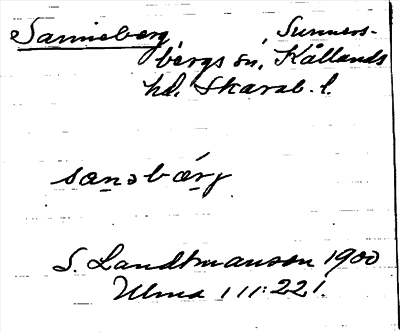 Sannieberg Sunners-
bergs sn, Kållands
hd. Skarab. l.
sanəbærg
S. Landtmanson 1900
Ulma 111:221.